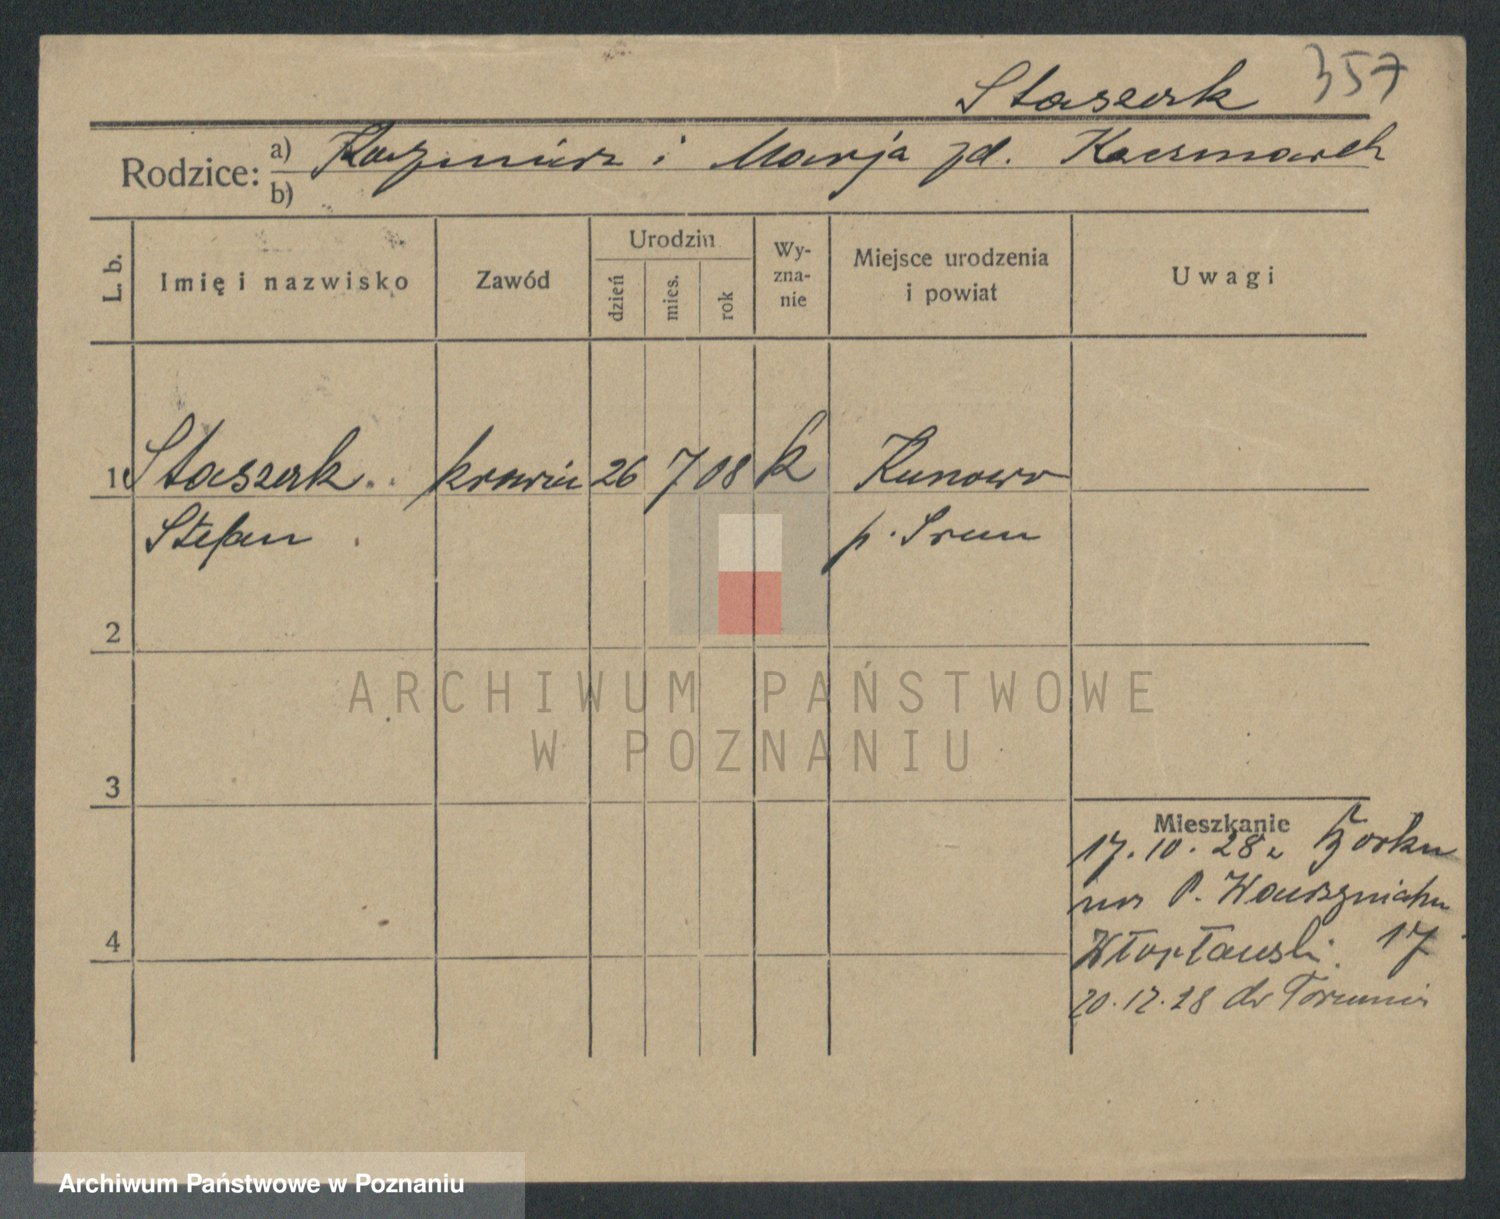 Staszak 357
Rodzice: a) Kazimierz i Marja zd. Kaczmarek
b)
L. b. Imię i nazwisko Zawód Urodzin dzień mies. rok Wy-zna-nie Miejsce urodzenia i powiat Uwagi
1 Staszak krawiec 26 7 08 k Kunowo
Stefan p. Śrem
2
ARCHIWUM PAŃSTWOWE
W POZNANIU
3
Mieszkanie
17.10.28 z
na P.
4
17
20.12.28 do Torunia
Archiwum Państwowe w Poznaniu